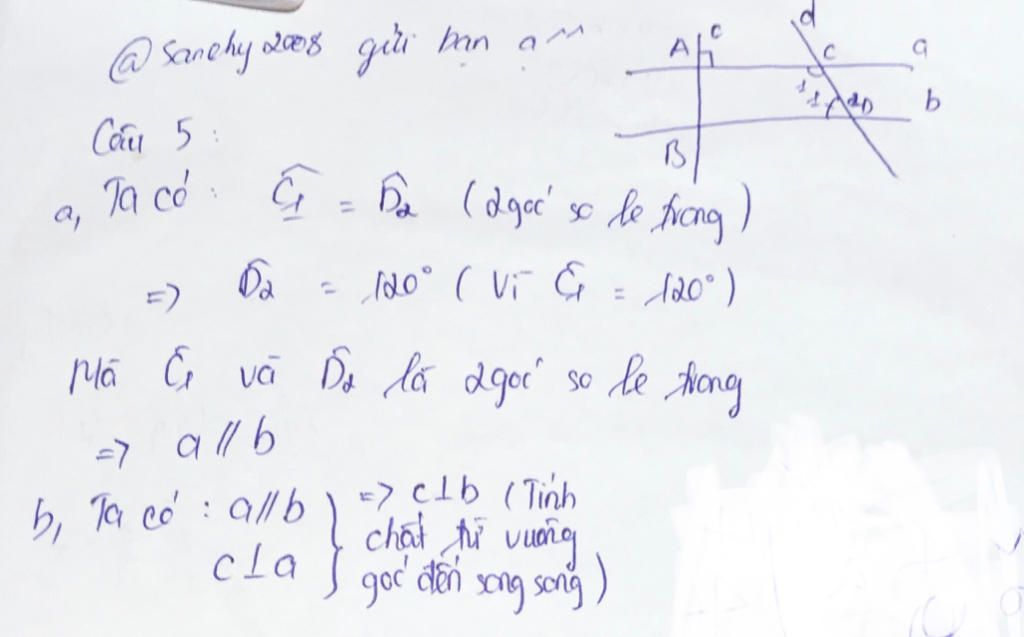 @Sanchy2008 gửi bạn ạ ~~
A c d C a
1 1 2 D b
B
Câu 5 :
a, Ta có : Ĉ₁ = D̂₂ (2 góc so le trong)
=> D̂₂ = 120° (Vì Ĉ₁ = 120°)
Mà Ĉ₁ và D̂₂ là 2 góc so le trong
=> a // b
b, Ta có : a // b } => c ⊥ b (Tính
c ⊥ a chất từ vuông
góc đến song song)